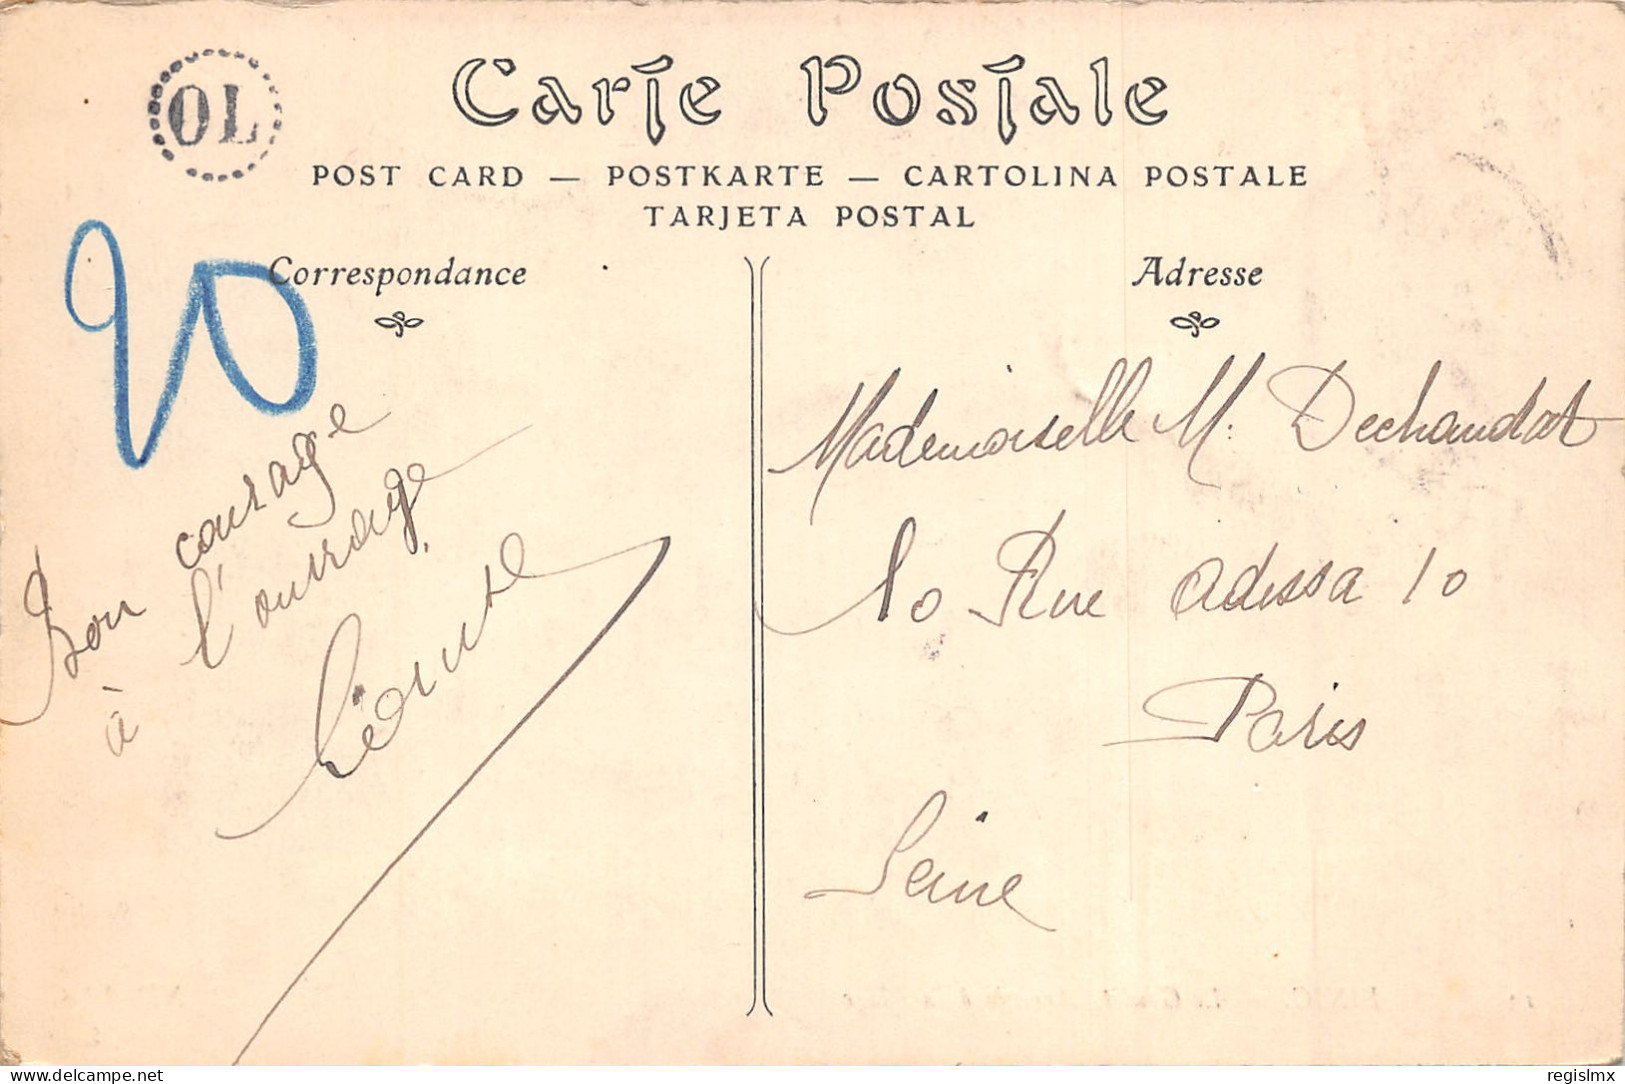 OL
Carte Postale
POST CARD — POSTKARTE — CARTOLINA POSTALE
TARJETA POSTAL
Correspondance
Adresse
20
Bon courage
à l'ouvrage.
Léontine
Mademoiselle M. Dechaudat
10 Rue Adessa 10
Paris
Seine
delcampe.net
regislmx